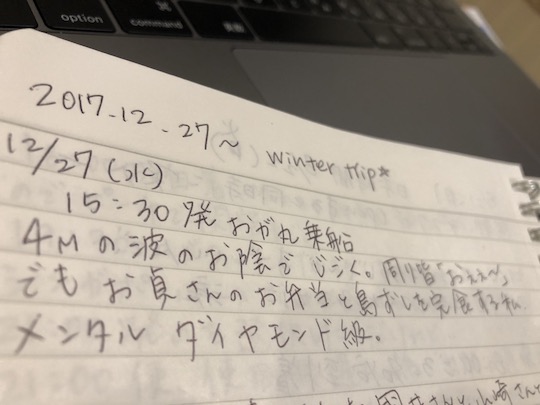 option
command
英数
2017.12.27〜
winter trip*
12/27(水)
15:30発 おがれ乗船
4Mの波のお陰でじごく。周り皆「おええ〜」
でも お貞さんのお弁当と島ずしを完食する私。
メンタル ダイヤモンド級。